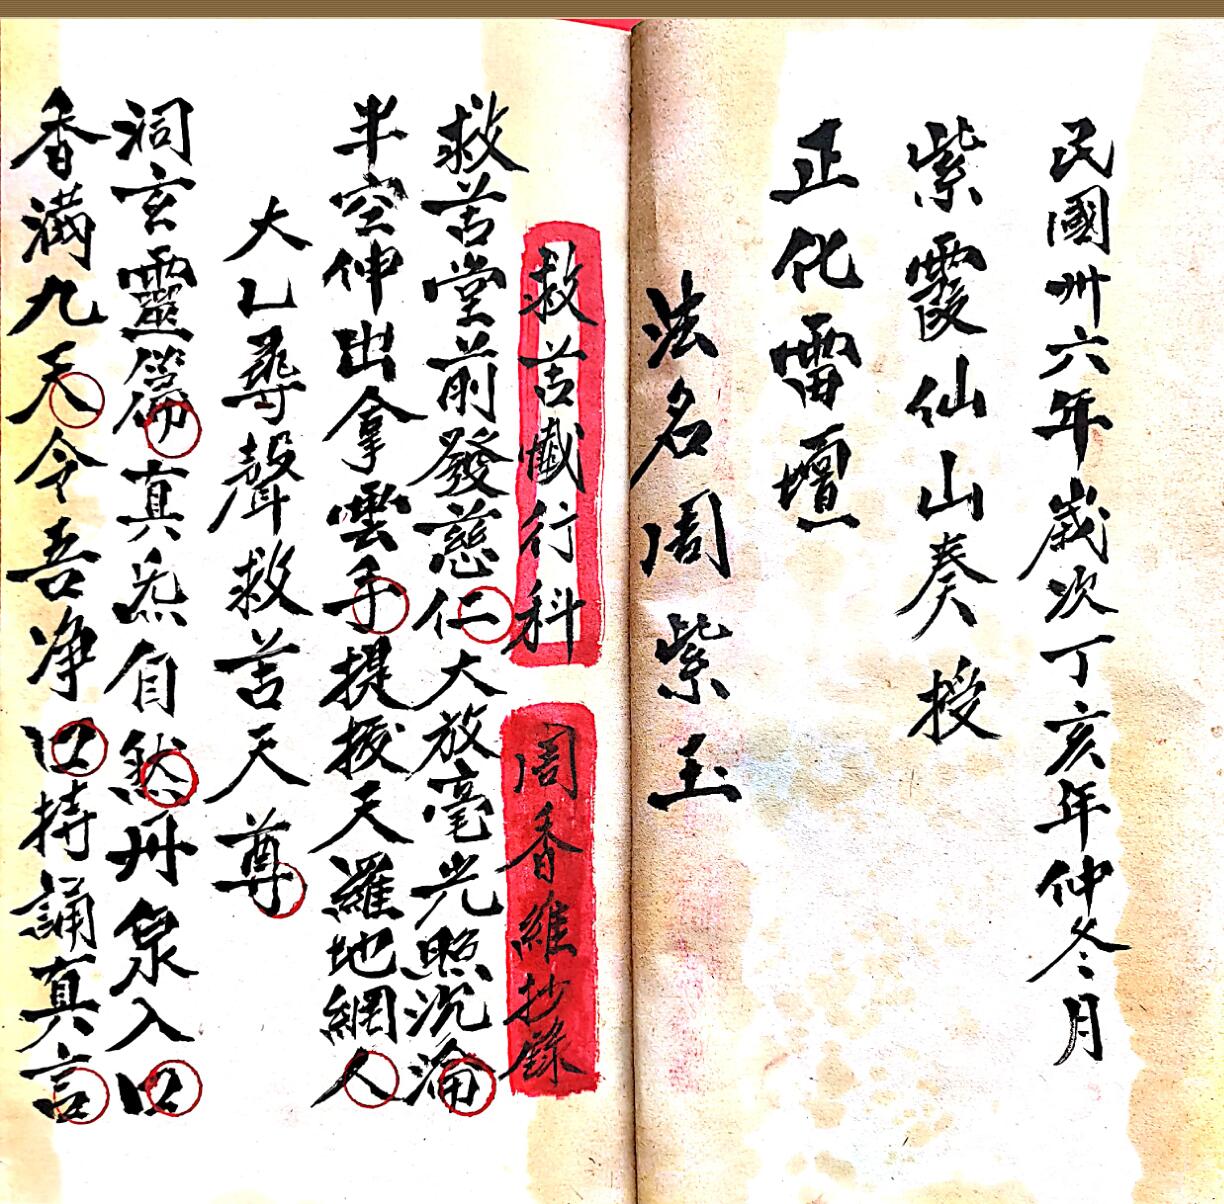 民國卅六年歲次丁亥年仲冬月
紫霞仙山奏授
正化雷壇
法名周紫玉
救苦懺行科 周香維抄錄
救苦堂前發慈仁大放毫光照沉淪
半空伸出拿雲手提拔天羅地網人
大乙尋聲救苦天尊
洞玄靈篇真炁自然丹泉入口
香滿九天令吾净口持誦真言